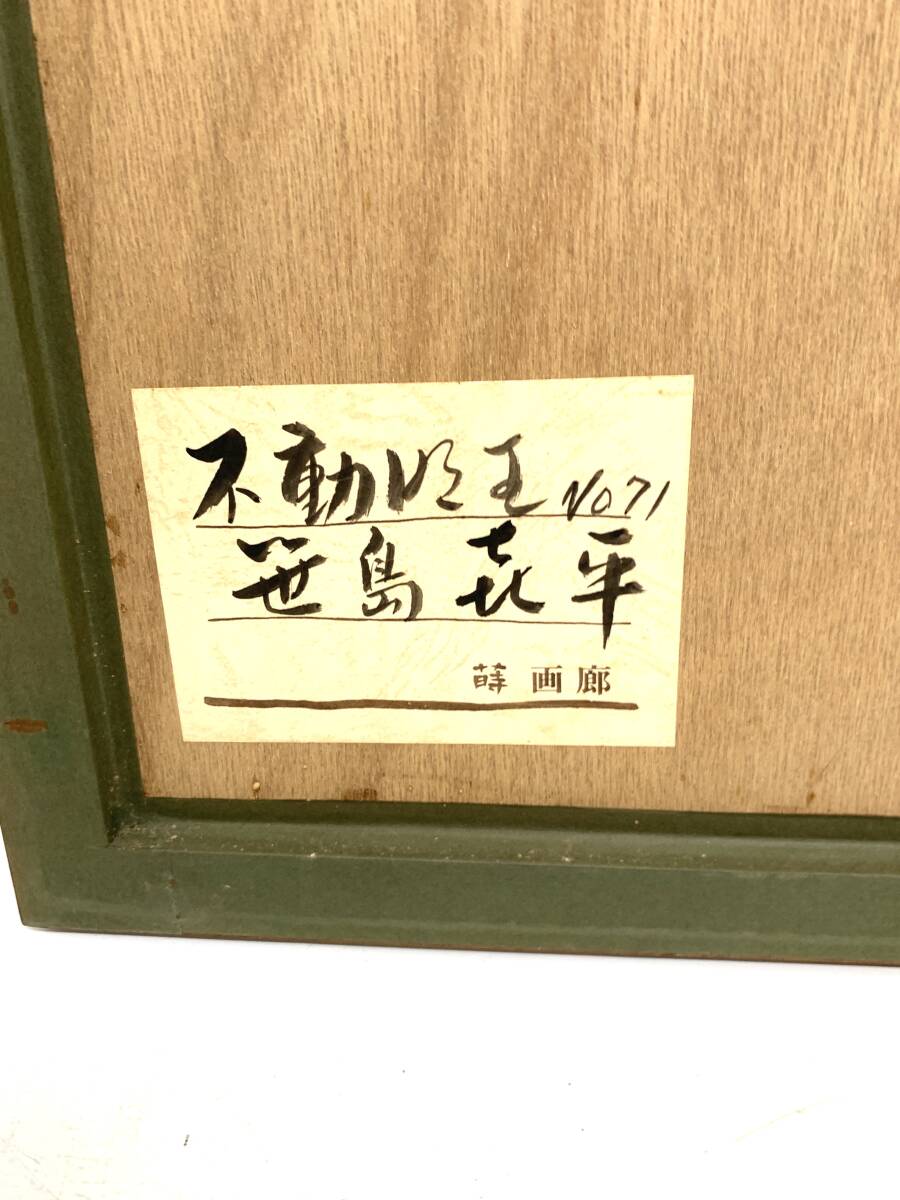 不動明王 No71
笹島喜平
蒔画廊